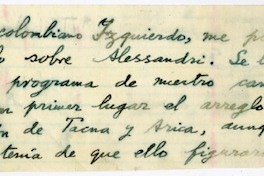 colombiano Izquierdo, me p
o sobre Alessandri. Se l
programa de nuestro can
n primer lugar el arreglo
ón de Tacna y Arica, aunq
tenía de que ello figurar